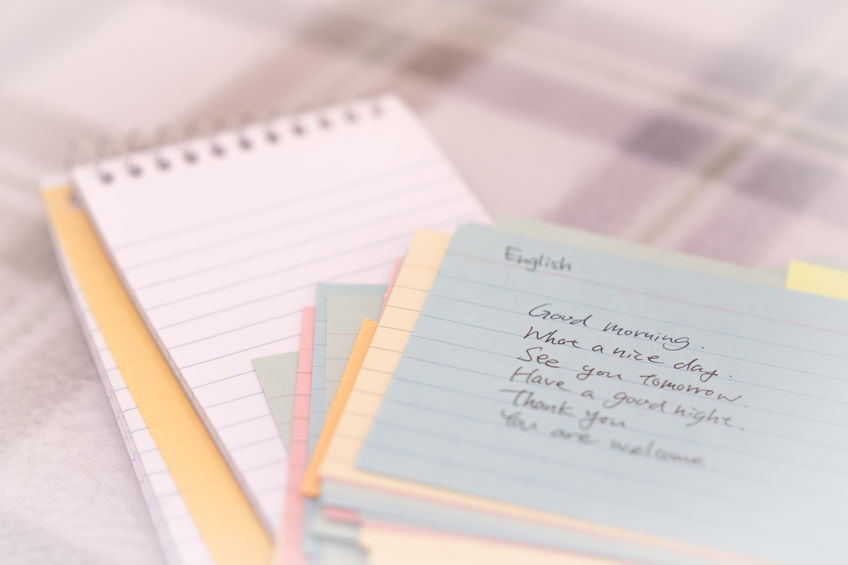 English
Good morning.
What a nice day.
See you tomorrow.
Have a good night.
Thank you
You are welcome.